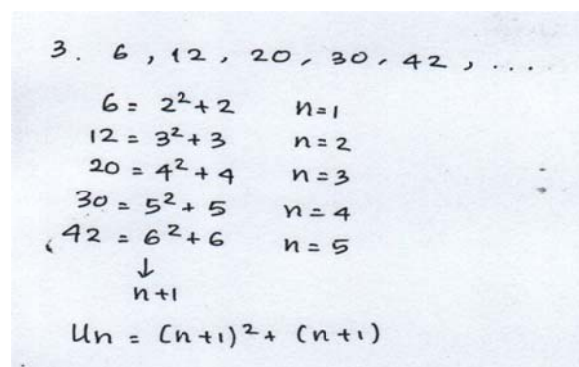 3. 6, 12, 20, 30, 42, ....
6 = 2² + 2 n=1
12 = 3² + 3 n = 2
20 = 4² + 4 n = 3
30 = 5² + 5 n = 4
42 = 6² + 6 n = 5
↓
n+1
Un = (n+1)² + (n+1)